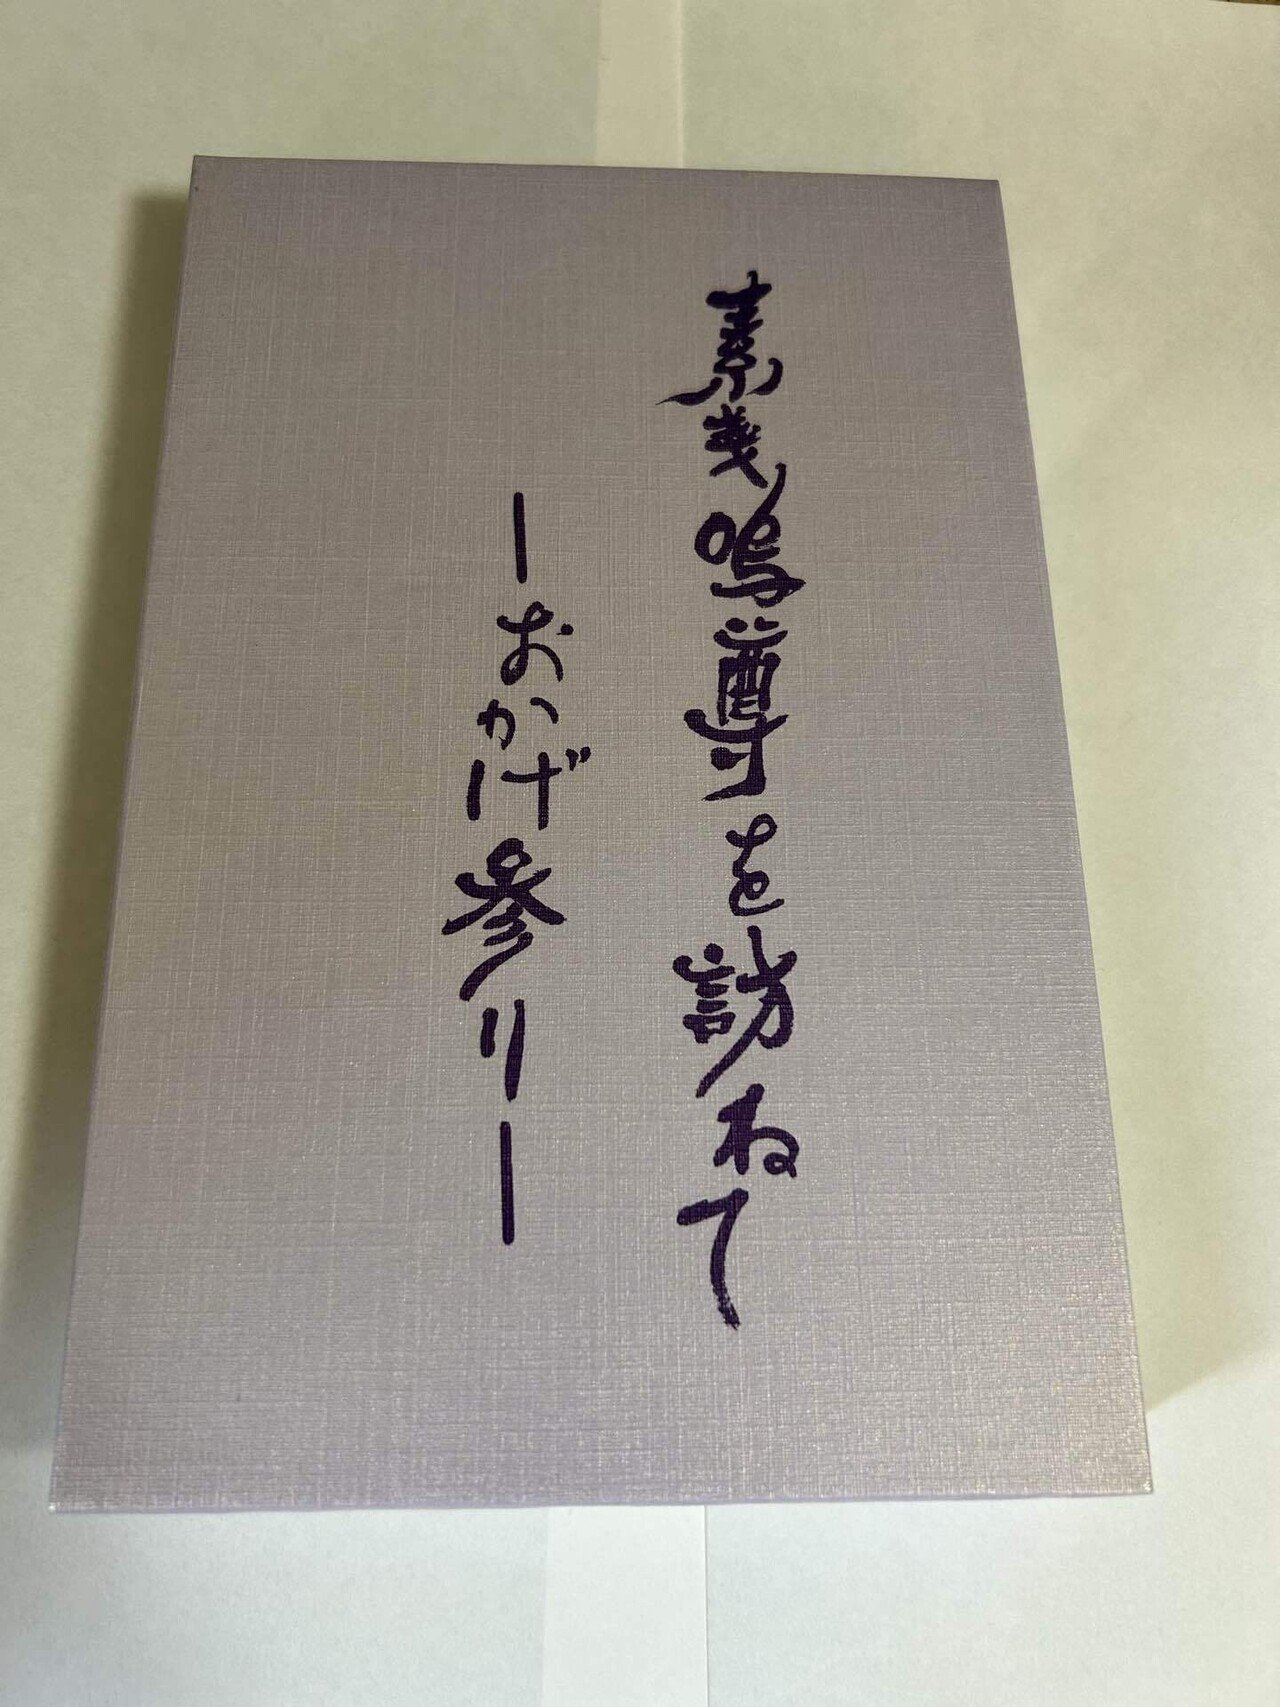 素戔嗚尊を訪ねて
―おかげ参り―